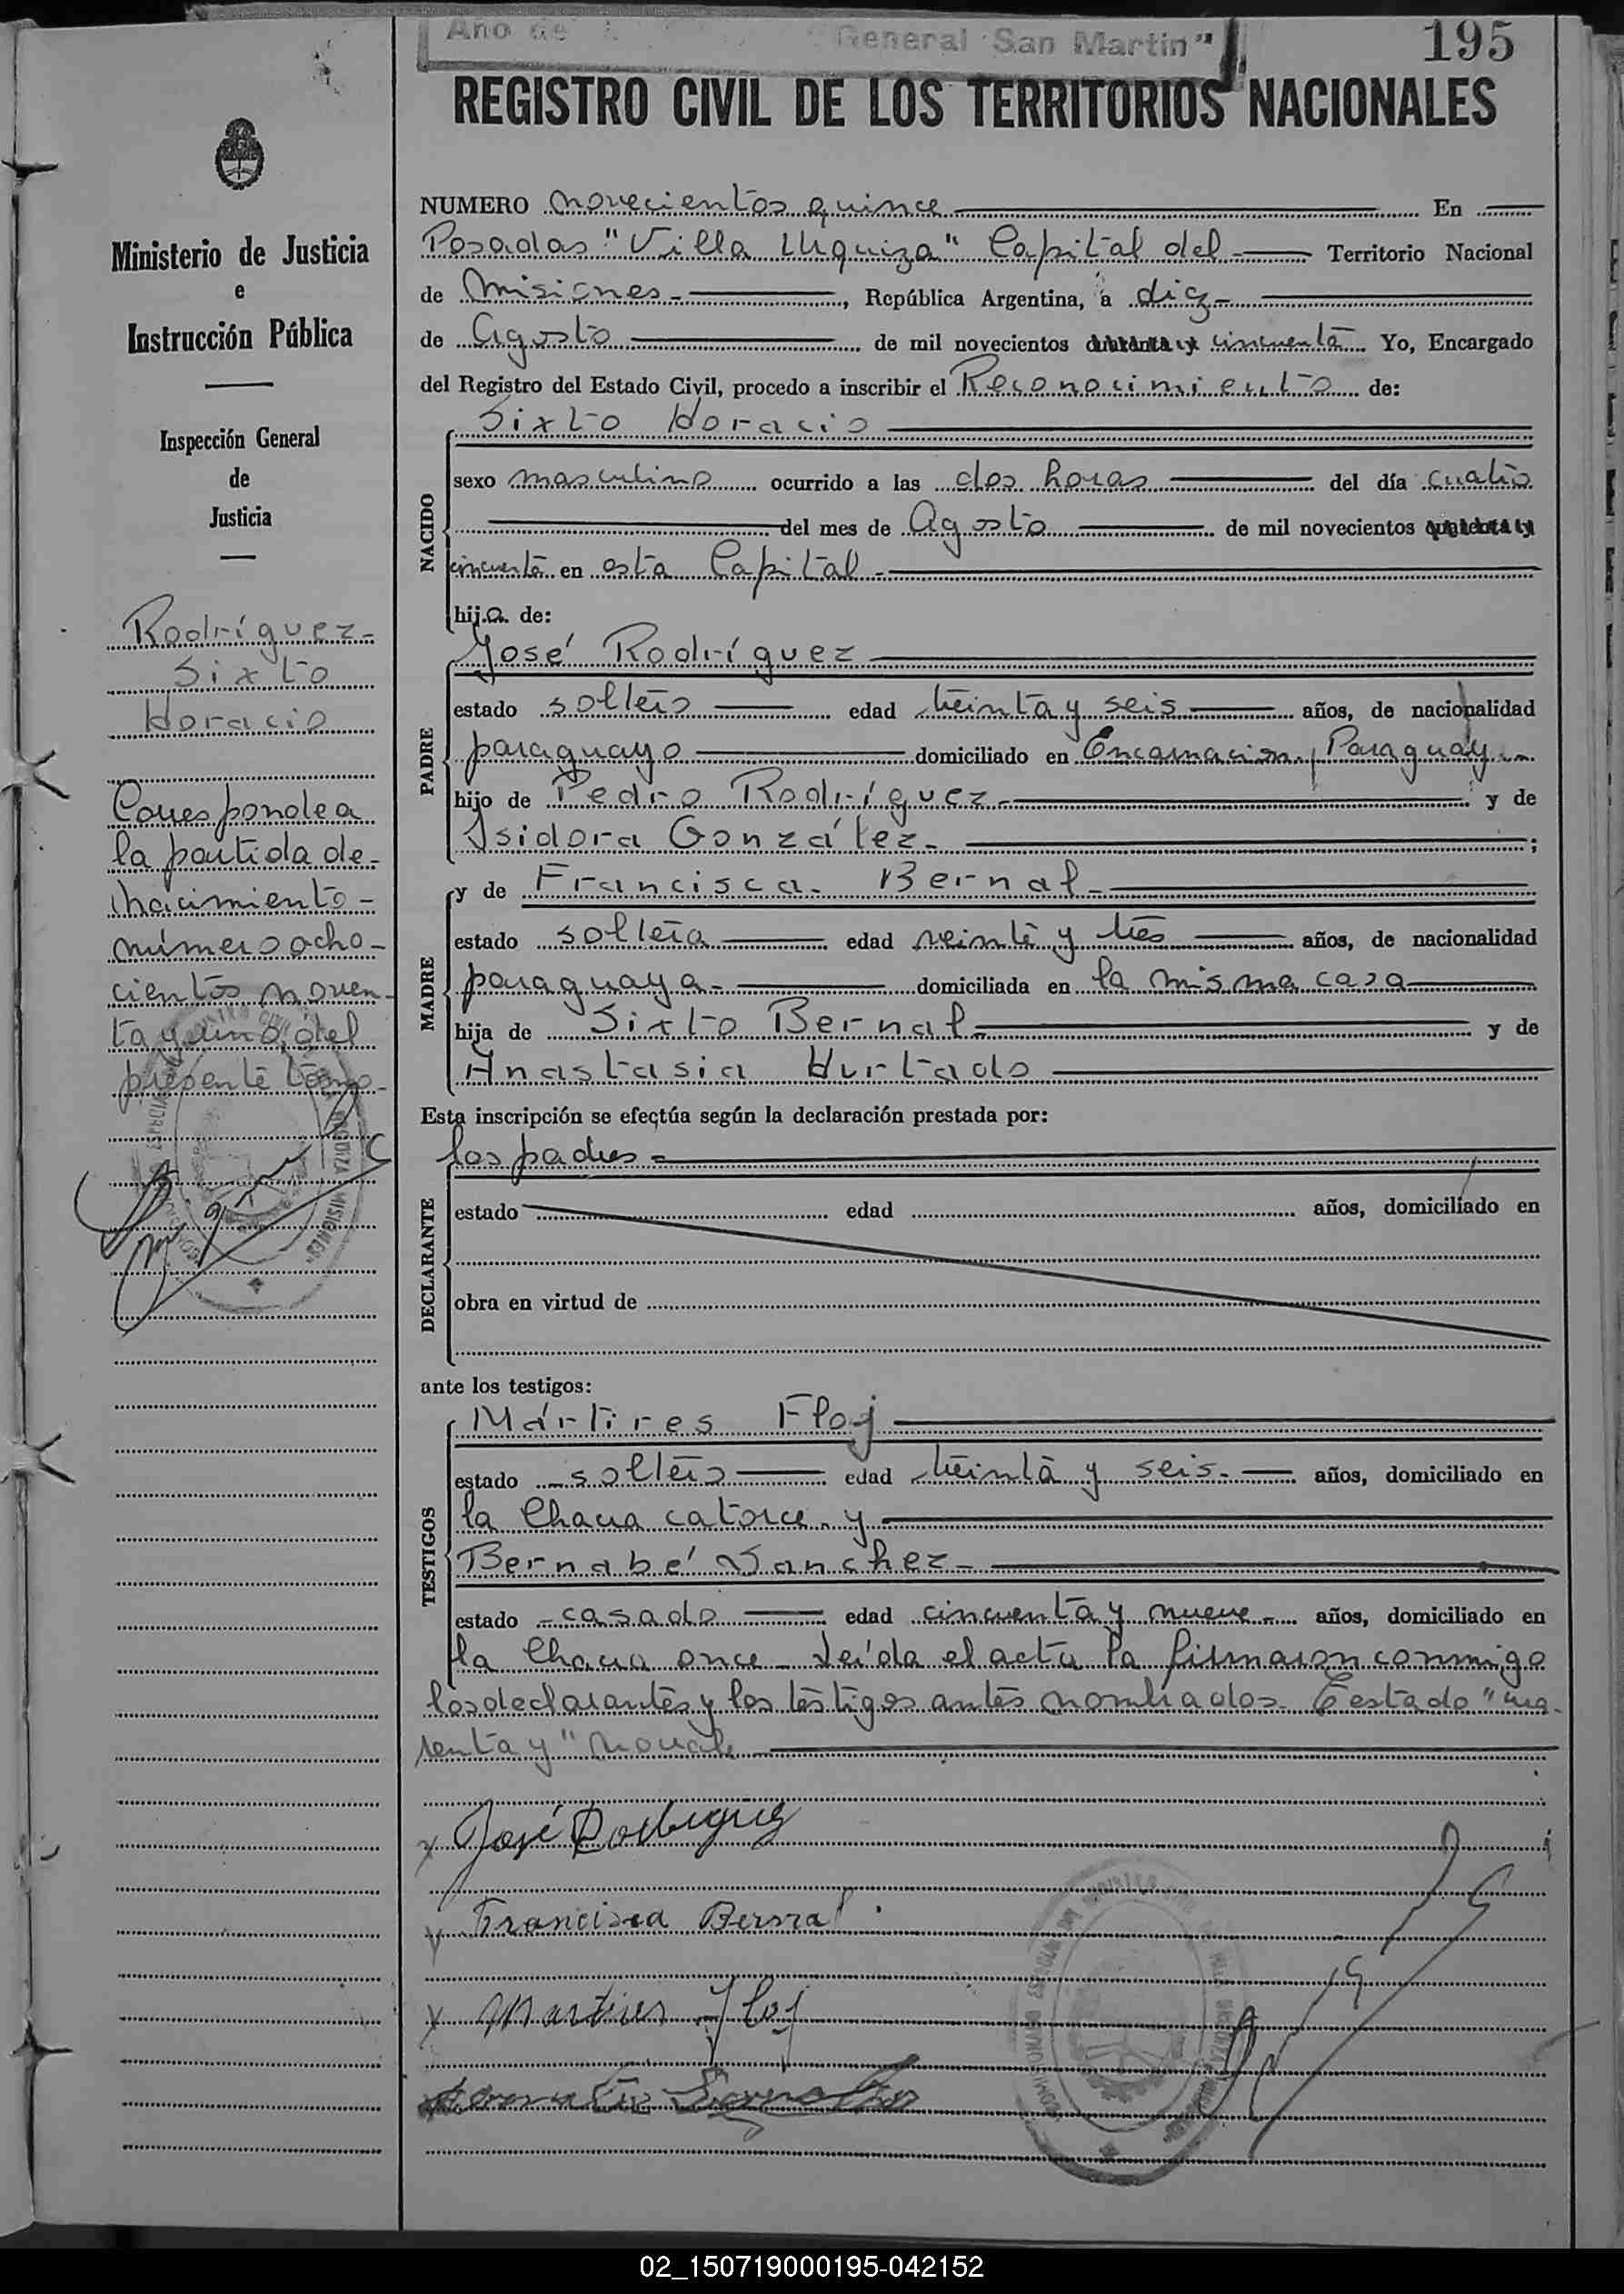 Año de General San Martin"
195
REGISTRO CIVIL DE LOS TERRITORIOS NACIONALES
Ministerio de Justicia
e
Instrucción Pública
Inspección General
de
Justicia
Rodríguez-
Sixto
Horacio
Corresponde a
la partida de-
nacimiento-
número ocho-
cientos noven-
ta y uno del
presente tomo-
NUMERO novecientos quince En
Posadas "Villa Urquiza" Capital del Territorio Nacional
de Misiones-, República Argentina, a diez-
de Agosto de mil novecientos cuarenta y cincuenta Yo, Encargado
del Registro del Estado Civil, procedo a inscribir el Reconocimiento de:
Sixto Horacio
NACIDO
sexo masculino ocurrido a las dos horas del día cuatro
del mes de Agosto de mil novecientos cuarenta y
cincuenta en esta Capital-
hijo de:
PADRE
José Rodríguez
estado soltero edad treinta y seis años, de nacionalidad
paraguayo domiciliado en Encarnacion, Paraguay
hijo de Pedro Rodríguez- y de
Isidora González- ;
MADRE
y de Francisca Bernal-
estado soltera edad veinte y tres años, de nacionalidad
paraguaya- domiciliada en la misma casa
hija de Sixto Bernal- y de
Anastasia Hurtado
Esta inscripción se efectúa según la declaración prestada por:
los padres=
DECLARANTE
estado edad años, domiciliado en
obra en virtud de
ante los testigos:
TESTIGOS
Mártires Floj
estado soltero edad treinta y seis- años, domiciliado en
la Chacra catorce y
Bernabé Sanchez-
estado casado edad cincuenta y nueve- años, domiciliado en
la Chacra once- Leída el acta la firmaron conmigo
los declarantes y los testigos antes nombrados- Testado "cua-
renta y" no vale
x José Rodriguez
x Francisca Bernal
x Martires Floj
02_150719000195-042152